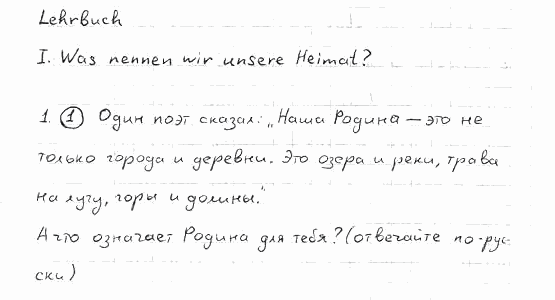 Lehrbuch
I. Was nennen wir unsere Heimat?
1. ① Один поэт сказал: „Наша Родина — это не
только города и деревни. Это озера и реки, трава
на лугу, горы и долины."
А что означает Родина для тебя? (отвечайте по-рус-
ски)